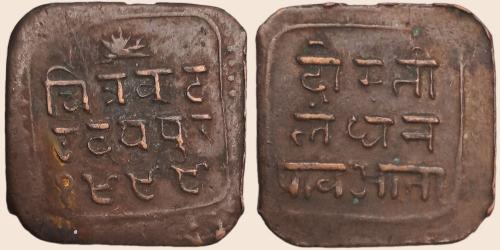 चित्रकूट
उदयपुर
१९९९
दोस्ती
लंधन
पाव आना